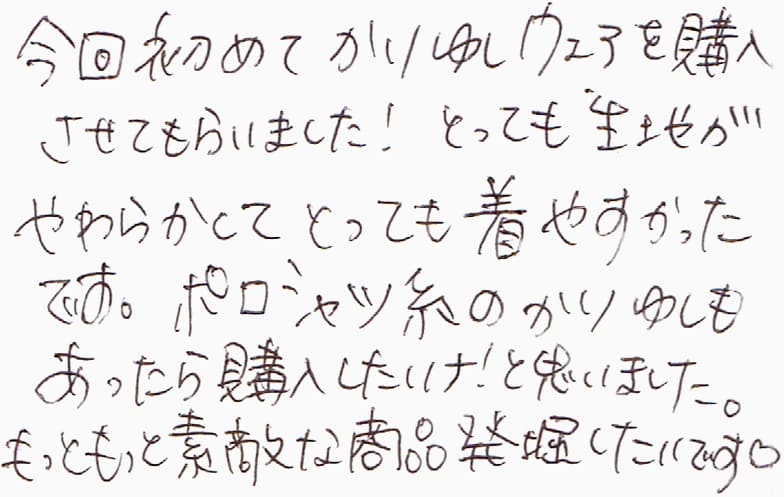 今回初めてかりゆしウェアを購入
させてもらいました！とっても生地が
やわらかくてとっても着やすかった
です。ポロシャツ系のかりゆしも
あったら購入したいナ！と思いました。
もっともっと素敵な商品発掘したいです。